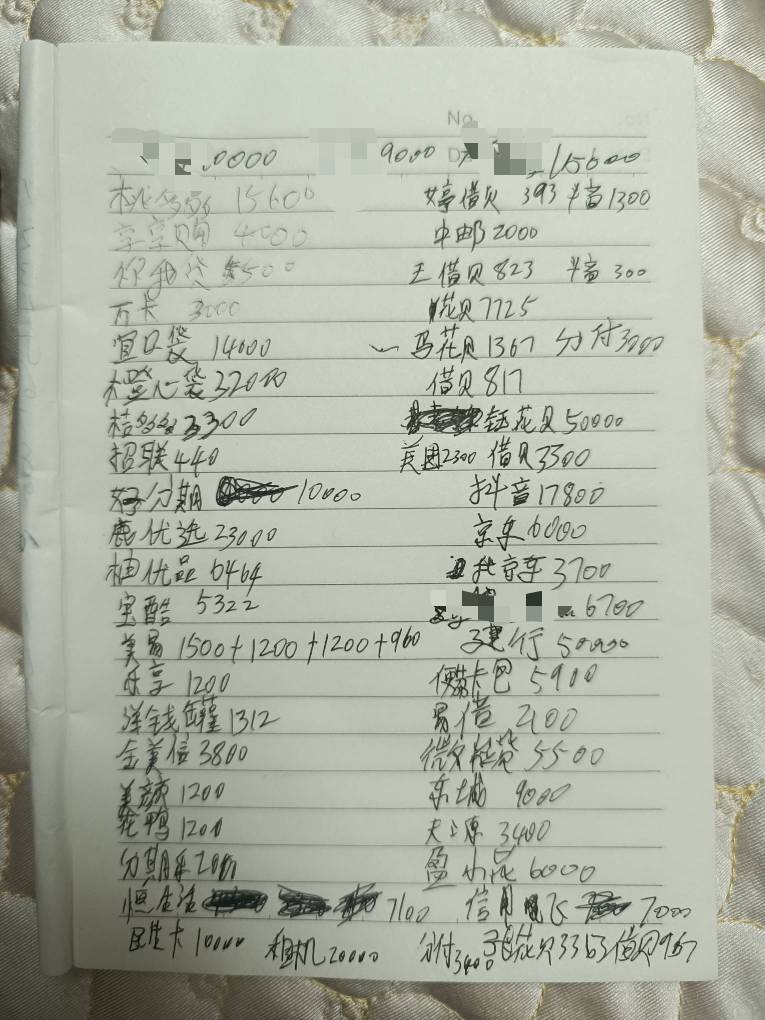 No
0000 9000 15600
桃多多 15600 婷借贝 393 半亩1300
享享购 4000 中邮2000
你我贷 500 王借贝823 半亩 300
万卡 3000 花贝7725
宜口袋 14000 马花贝1367 分付3000
橙心袋32000 借贝817
桔多多3300 钰花贝50000
招联440 美团2300 借贝3300
好分期 10000 抖音17800
鹿优选23000 京东6000
柚优品6464 京东3700
宝酷 5322 6700
美易 1500+1200+1200+960 建行50000
乐享 1200 卡包5900
洋钱罐1312 易借 2100
金美信3800 微粒贷5500
美颜1200 东城 9000
花鸭1200 3400
分期乐 盈小花6000
恒生活 7100 信用飞 7000
民生卡10000 租机20000 分付3400 花贝3363借贝967